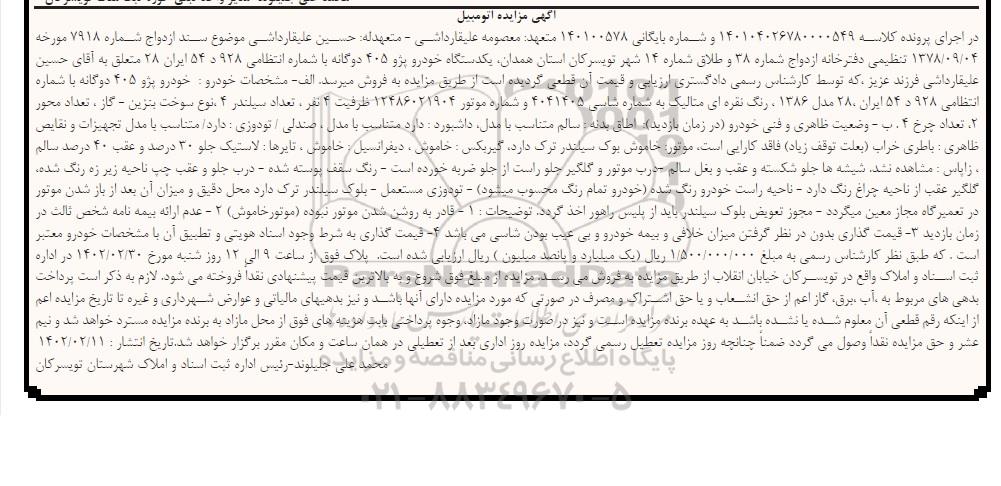 آگهی مزایده اتومبیل
در اجرای پرونده کلاسه ۱۴۰۱۰۴۰۲۶۷۸۰۰۰۰۵۴۹ و شماره بایگانی ۱۴۰۱۰۰۵۷۸ متعهد: معصومه علیقارداشی - متعهدله: حسین علیقارداشی موضوع سند ازدواج شماره ۷۹۱۸ مورخه
۱۳۷۸/۰۹/۰۴ تنظیمی دفترخانه ازدواج شماره ۳۸ و طلاق شماره ۱۴ شهر تویسرکان استان همدان، یکدستگاه خودرو پژو ۴۰۵ دوگانه با شماره انتظامی ۹۲۸ د ۵۴ ایران ۲۸ متعلق به آقای حسین
علیقارداشی فرزند عزیز ،که توسط کارشناس رسمی دادگستری ارزیابی و قیمت آن قطعی گردیده است از طریق مزایده به فروش میرسد. الف- مشخصات خودرو : خودرو پژو ۴۰۵ دوگانه با شماره
انتظامی ۹۲۸ د ۵۴ ایران ۲۸، مدل ۱۳۸۶ ، رنگ نقره ای متالیک به شماره شاسی ۴۰۴۱۴۰۵ و شماره موتور ۱۲۴۸۶۰۲۱۹۰۴ ظرفیت ۴ نفر ، تعداد سیلندر ۴ ،نوع سوخت بنزین - گاز ، تعداد محور
۲، تعداد چرخ ۴ . ب - وضعیت ظاهری و فنی خودرو (در زمان بازدید): اطاق بدنه : سالم متناسب با مدل، داشبورد : دارد متناسب با مدل ، صندلی / تودوزی : دارد/ متناسب با مدل تجهیزات و نقایص
ظاهری : باطری خراب (بعلت توقف زیاد) فاقد کارایی است، موتور: خاموش بوک سیلندر ترک دارد، گیربکس : خاموش ، دیفرانسیل : خاموش ، تایرها : لاستیک جلو ۳۰ درصد و عقب ۴۰ درصد سالم
، زاپاس : مشاهده نشد، شیشه ها جلو شکسته و عقب و بغل سالم -درب موتور و گلگیر جلو راست از جلو ضربه خورده است - رنگ سقف پوسته شده - درب جلو و عقب چپ ناحیه زیر زه رنگ شده،
گلگیر عقب از ناحیه چراغ رنگ دارد - ناحیه راست خودرو رنگ شده (خودرو تمام رنگ محسوب میشود) - تودوزی مستعمل - بلوک سیلندر ترک دارد محل دقیق و میزان آن بعد از باز شدن موتور
در تعمیرگاه مجاز معین میگردد - مجوز تعویض بلوک سیلندر باید از پلیس راهور اخذ گردد. توضیحات : ۱ - قادر به روشن شدن موتور نبوده (موتورخاموش) ۲ - عدم ارائه بیمه نامه شخص ثالث در
زمان بازدید ۳- قیمت گذاری بدون در نظر گرفتن میزان خلافی و بیمه خودرو و بی عیب بودن شاسی می باشد ۴- قیمت گذاری به شرط وجود اسناد هویتی و تطبیق آن با مشخصات خودرو معتبر
است . که طبق نظر کارشناس رسمی به مبلغ ۱/۵۰۰/۰۰۰/۰۰۰ ریال (یک میلیارد و پانصد میلیون ) ریال ارزیابی شده است. پلاک فوق از ساعت ۹ الی ۱۲ روز شنبه مورخ ۱۴۰۲/۰۲/۳۰ در اداره
ثبت اسناد و املاک واقع در تویسرکان خیابان انقلاب از طریق مزایده به فروش می رسد. مزایده از مبلغ فوق شروع و به بالاترین قیمت پیشنهادی نقداً فروخته می شود. لازم به ذکر است پرداخت
بدهی های مربوط به ،آب ،برق، گاز اعم از حق انشعاب و یا حق اشتراک و مصرف در صورتی که مورد مزایده دارای آنها باشد و نیز بدهیهای مالیاتی و عوارض شهرداری و غیره تا تاریخ مزایده اعم
از اینکه رقم قطعی آن معلوم شده یا نشده باشد به عهده برنده مزایده است و نیز در صورت وجود مازاد، وجوه پرداختی بابت هزینه های فوق از محل مازاد به برنده مزایده مسترد خواهد شد و نیم
عشر و حق مزایده نقداً وصول می گردد ضمناً چنانچه روز مزایده تعطیل رسمی گردد، مزایده روز اداری بعد از تعطیلی در همان ساعت و مکان مقرر برگزار خواهد شد.تاریخ انتشار : ۱۴۰۲/۰۲/۱۱
محمد علی جلیلوند-رئیس اداره ثبت اسناد و املاک شهرستان تویسرکان
پایگاه اطلاع رسانی مناقصه و مزایده
۰۲۱-۸۸۳۴۹۶۷۰-۵